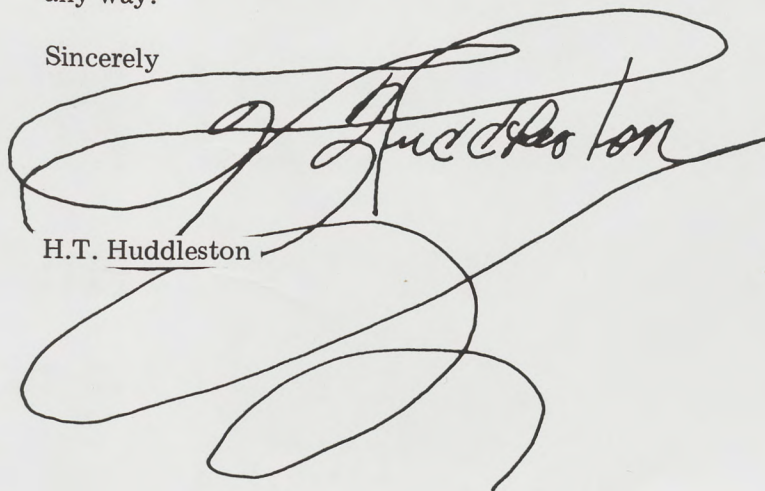 any way.
Sincerely
Huddleston
H.T. Huddleston